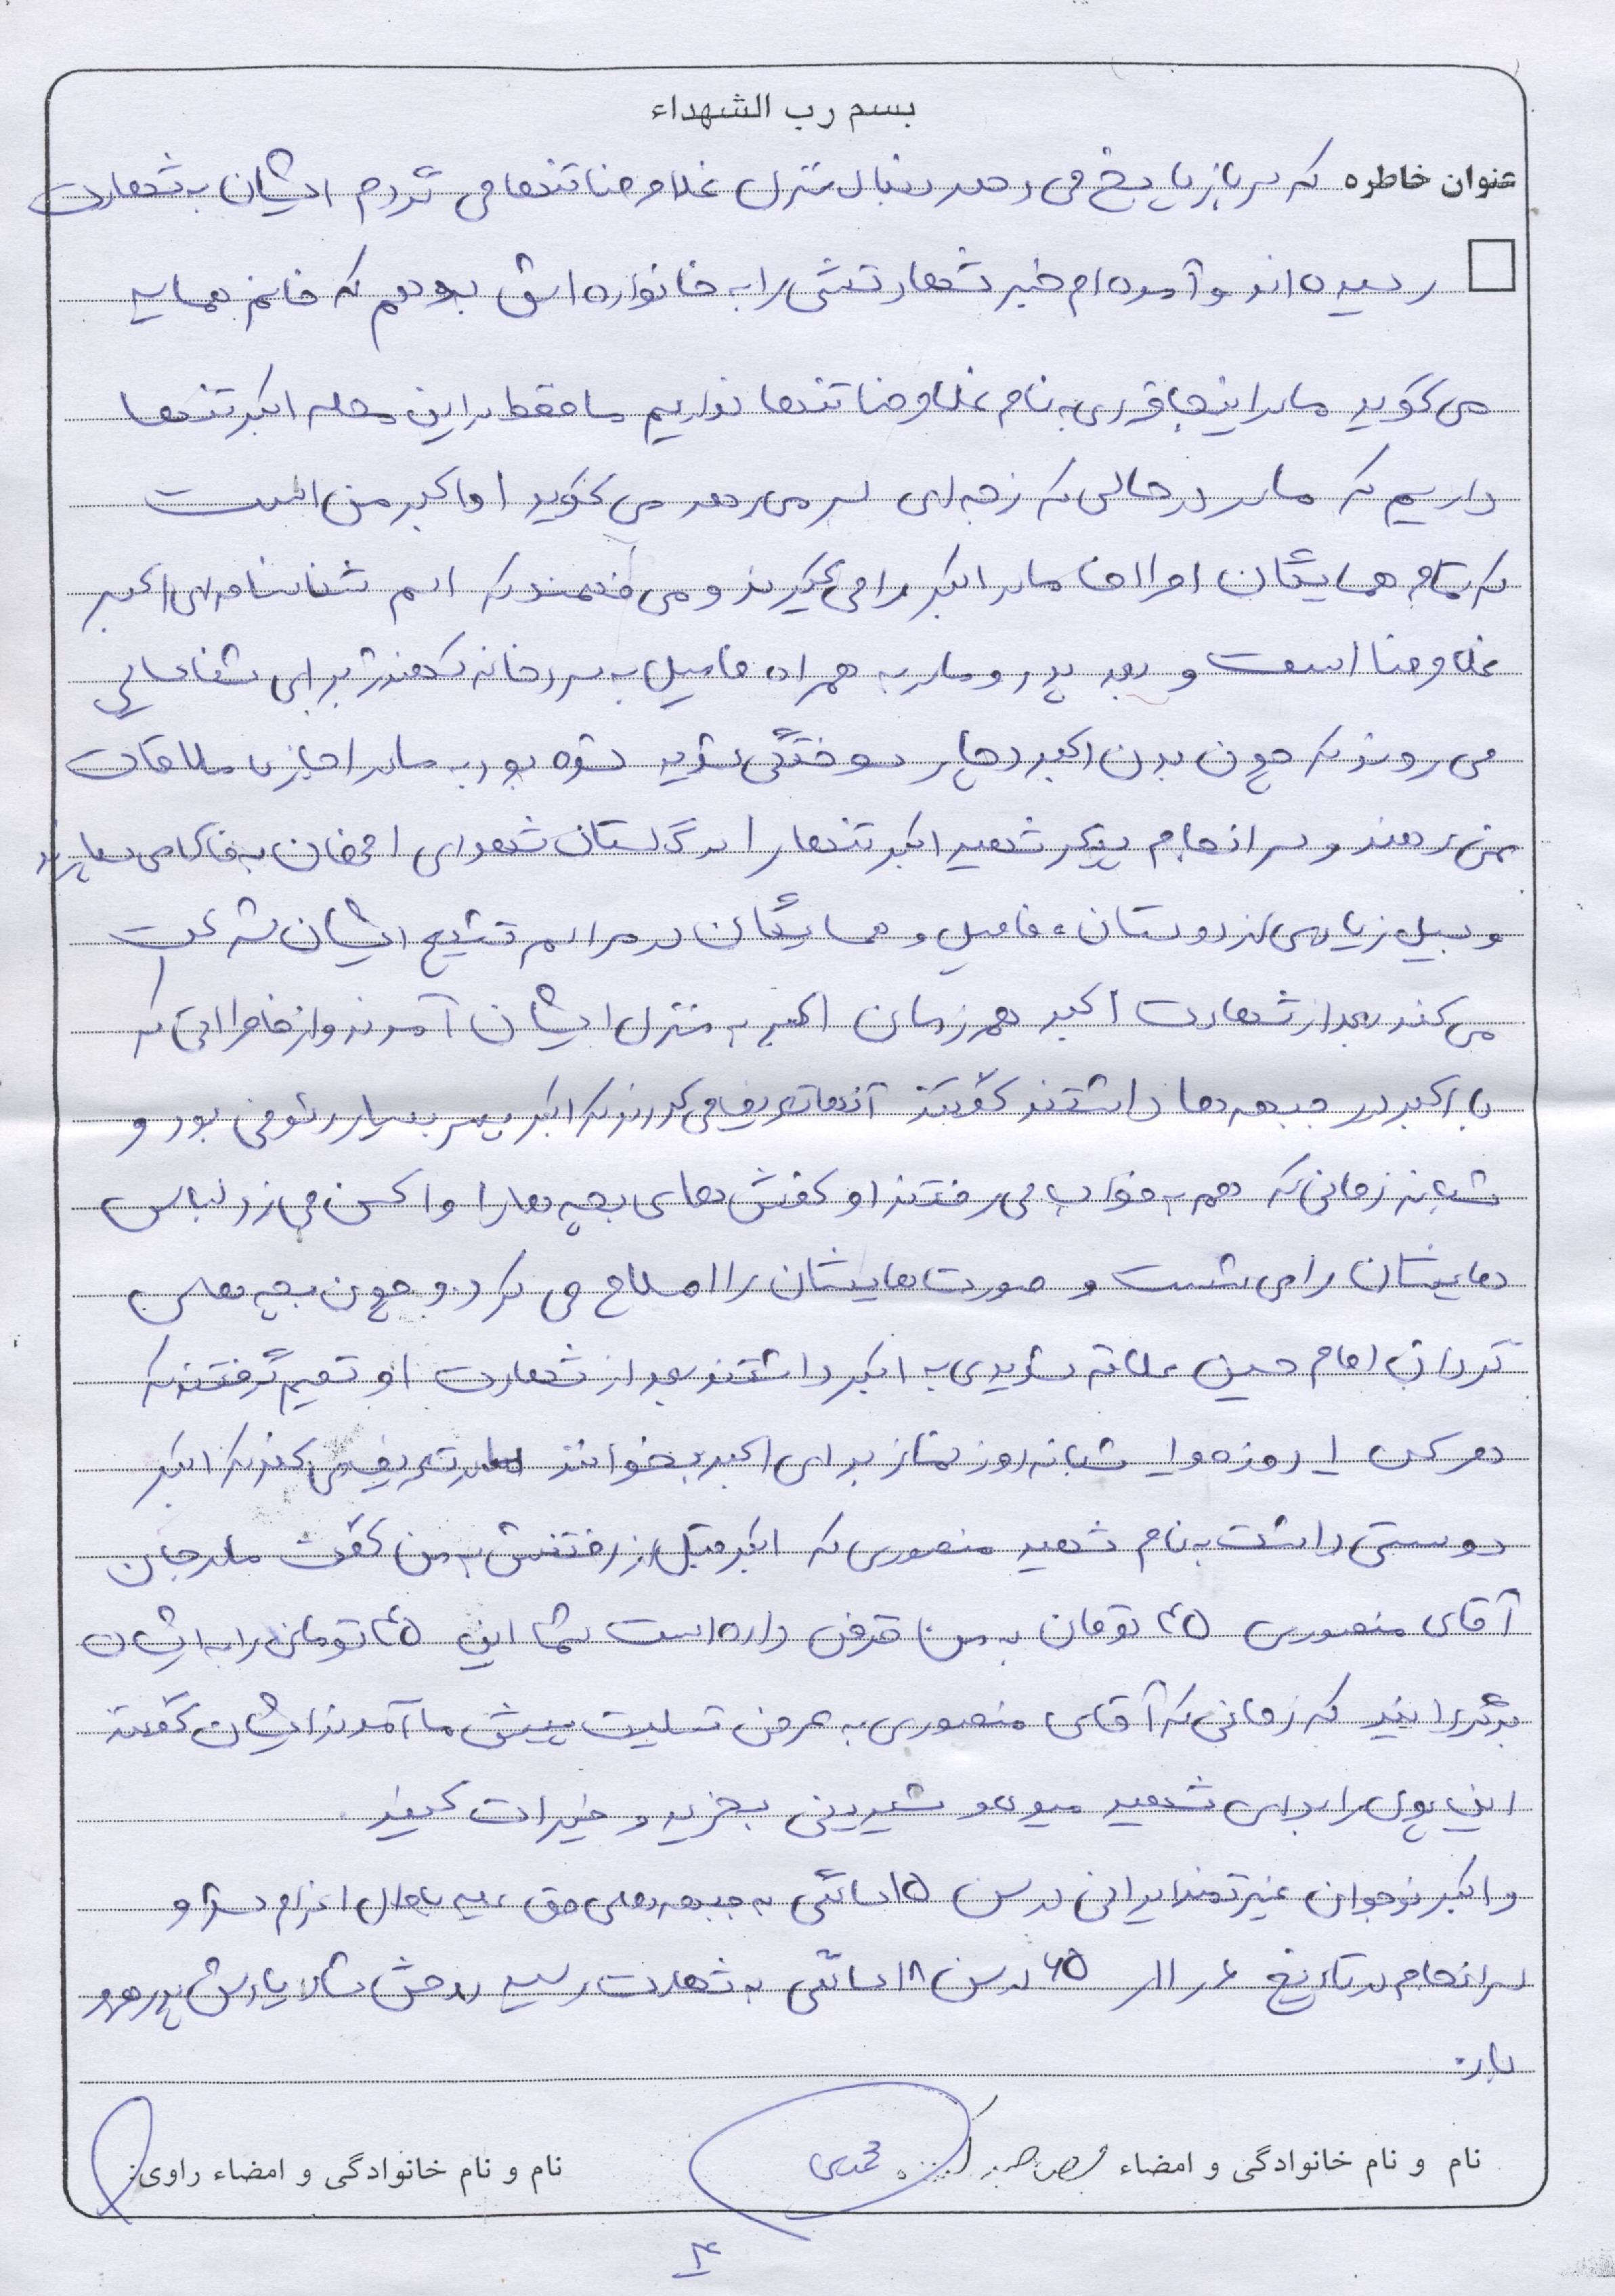 بسم رب الشهداء
عنوان خاطره که سرباز پاسخ می دهد دنبال منزل غلامرضا تنها می گردم ایشان به شهادت
رسیده اند و آمده ام خبر شهادتش را به خانواده اش بدهم که خانم همسایه
می گوید ما در اینجا فردی به نام غلامرضا تنها نداریم ما فقط در این محله اکبر تنها
داریم که مادر در حالی که زجه ای سر می دهد می گوید او اکبر من است
که تمام همسایگان اطراف مادر اکبر را می گیرند و می فهمند که اسم شناسنامه ای اکبر
غلامرضا است و بعد پدر و مادر به همراه فامیل به سردخانه کهندژ برای شناسایی
می روند که چون بدن اکبر دچار سوختگی شدید شده بود به مادر اجازه ی ملاقات
نمی دهند و سرانجام پیکر شهید اکبر تنها را در گلستان شهدای اصفهان به خاک می سپارند
و سیل زیادی از دوستان، فامیل و همسایگان در مراسم تشییع ایشان شرکت
می کنند بعد از شهادت اکبر همرزمان اکبر به منزل ایشان آمدند و از خاطراتی که
با اکبر در جبهه ها داشتند گفتند آنها تعریف می کردند که اکبر پسر بسیار رئوفی بود و
شبانه زمانی که همه به خواب می رفتند او کفش های بچه ها را واکس می زد لباس
هایشان را می شست و صورت هایشان را اصلاح می کرد. و چون بچه های
گردان امام حسین علاقه شدیدی به اکبر داشتند بعد از شهادت او تصمیم گرفتند که
هر کس ۱ روزه و ۱ شبانه روز نماز برای اکبر بخوانند مادر تعریف می کند که اکبر
دوستی داشت به نام شهید منصوری که اکبر قبل از رفتنش به من گفت مادر جان
آقای منصوری ۲۵ تومان به من قرض داده است شما این ۲۵ تومان را به ایشان
برگردانید که زمانی که آقای منصوری به عرض تسلیت پیش ما آمدند ایشان گفتند
این پول را برای شهید میوه و شیرینی بخرید و خیرات کنید.
و اکبر نوجوان غیرتمند ایرانی در سن ۱۵ سالگی به جبهه های حق علیه باطل اعزام شد و
سرانجام در تاریخ ۴ر۱۱ر۶۵ در سن ۱۸ سالگی به شهادت رسید روحش شاد یادش پر رهرو
باد.
نام و نام خانوادگی و امضاء مصاحبه کننده محمدی
نام و نام خانوادگی و امضاء راوی:
۴